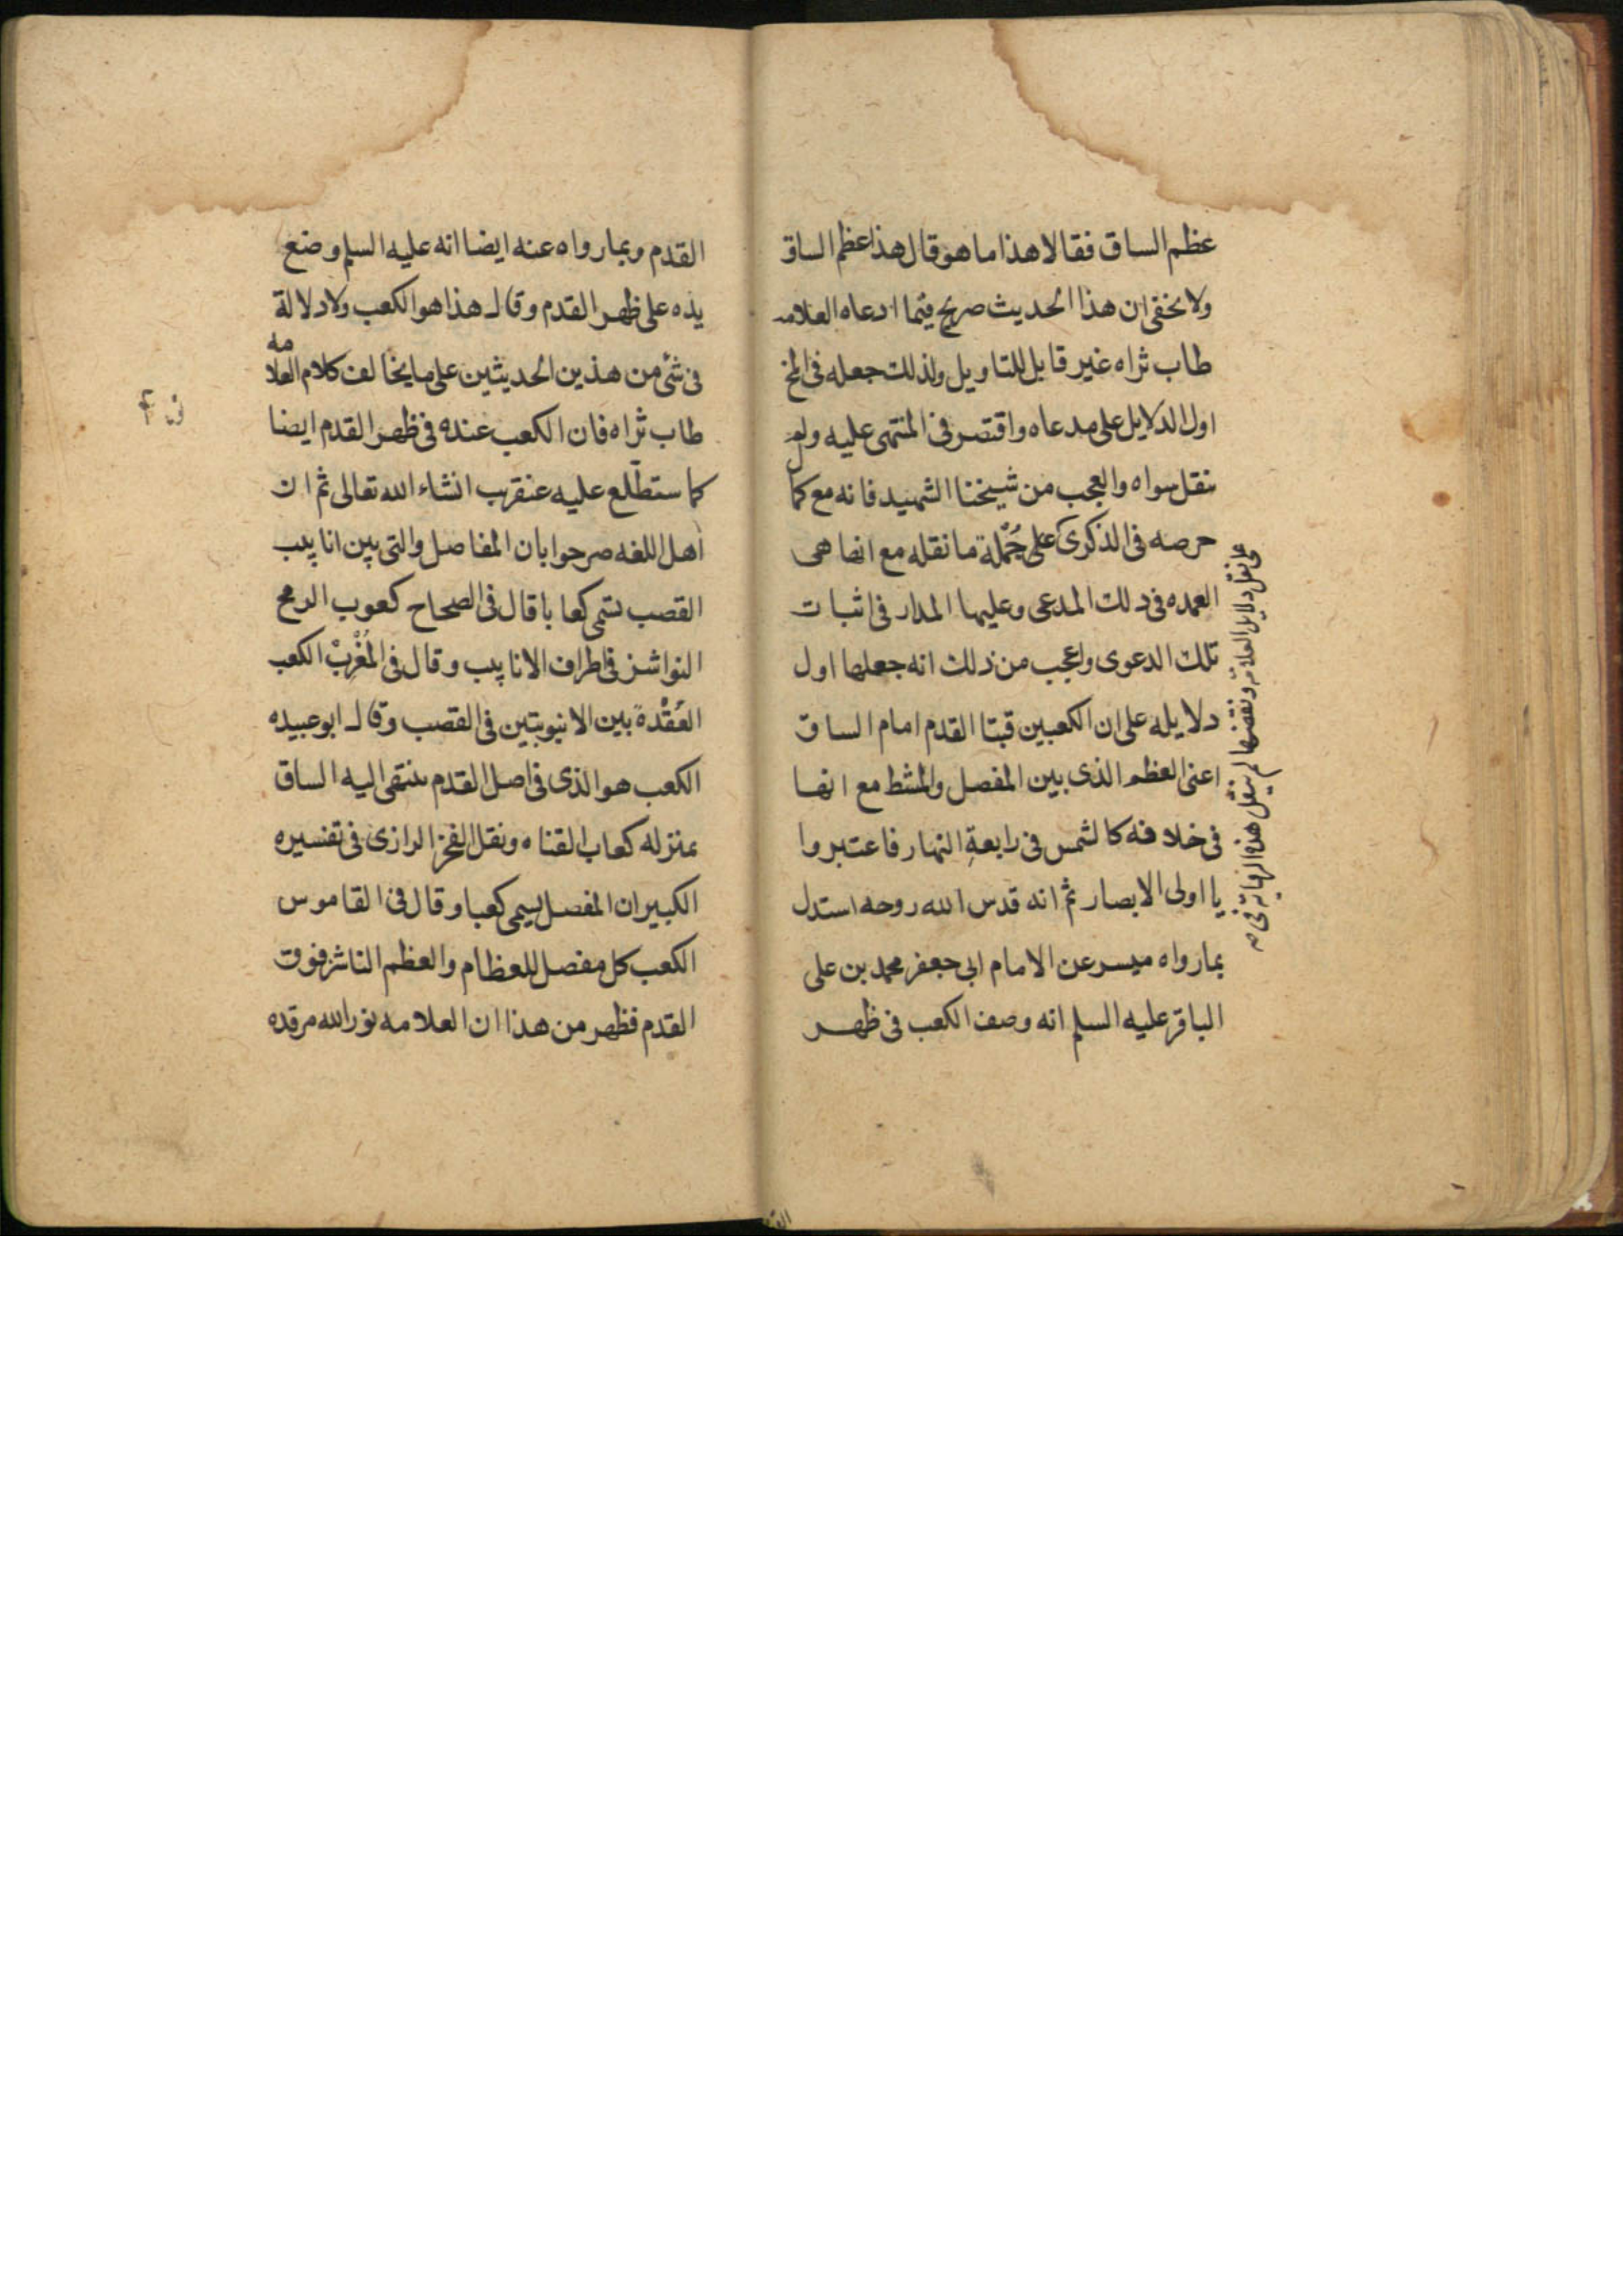 عظم الساق فقالا هذا ما هو قال هذا عظم الساق
ولا يخفى ان هذا الحديث صريح فيما ادعاه العلامه
طاب ثراه غير قابل للتاويل ولذلك جعله في المخ
اول الدلايل على مدعاه واقتصر في المنتهى عليه ولم
ينقل سواه والعجب من شيخنا الشهيد فانه مع كما
حرصه في الذكرى على جُمْلة ما نقله مع انها هى
العمده في ذلك المدعى وعليها المدار في اثبات
تلك الدعوى واعجب من ذلك انه جعلها اول
دلايله على ان الكعبين قبتا القدم امام الساق
اعنى العظم الذى بين المفصل والمشط مع انها
في خلافه كالشمس في رابعةِ النهار فاعتبروا
يا اولى الابصار ثم انه قدس الله روحه استدل
بما رواه ميسر عن الامام ابى جعفر محمد بن على
الباقر عليه السلم انه وصف الكعب في ظهر
نقل دلايل العلامة ونقضها لم ينقل هذه الرواية
القدم وبما رواه عنه ايضا انه عليه السلم وضع
يده على ظهر القدم وقال هذا هو الكعب ولا دلالة
في شئ من هذين الحديثين على ما يخالف كلام العلامه
طاب ثراه فان الكعب عنده في ظهر القدم ايضا
كما ستطّلع عليه عنقريب انشاء الله تعالى ثم ان
اهل اللغه صرحوا بان المفاصل والتى بين انابيب
القصب تسمى كعابا قال في الصحاح كعوب الرمح
النواشز في اطراف الانابيب وقال في المُغْرِبْ الكعب
العُقْدة بين الانبوبتين في القصب وقال ابو عبيده
الكعب هو الذى في اصل القدم ينتهى اليه الساق
بمنزله كعاب القناه ونقل الفخر الرازى في تفسيره
الكبير ان المفصل يسمى كعبا وقال في القاموس
الكعب كل مفصل للعظام والعظم الناشز فوق
القدم فظهر من هذا ان العلامه نور الله مرقده